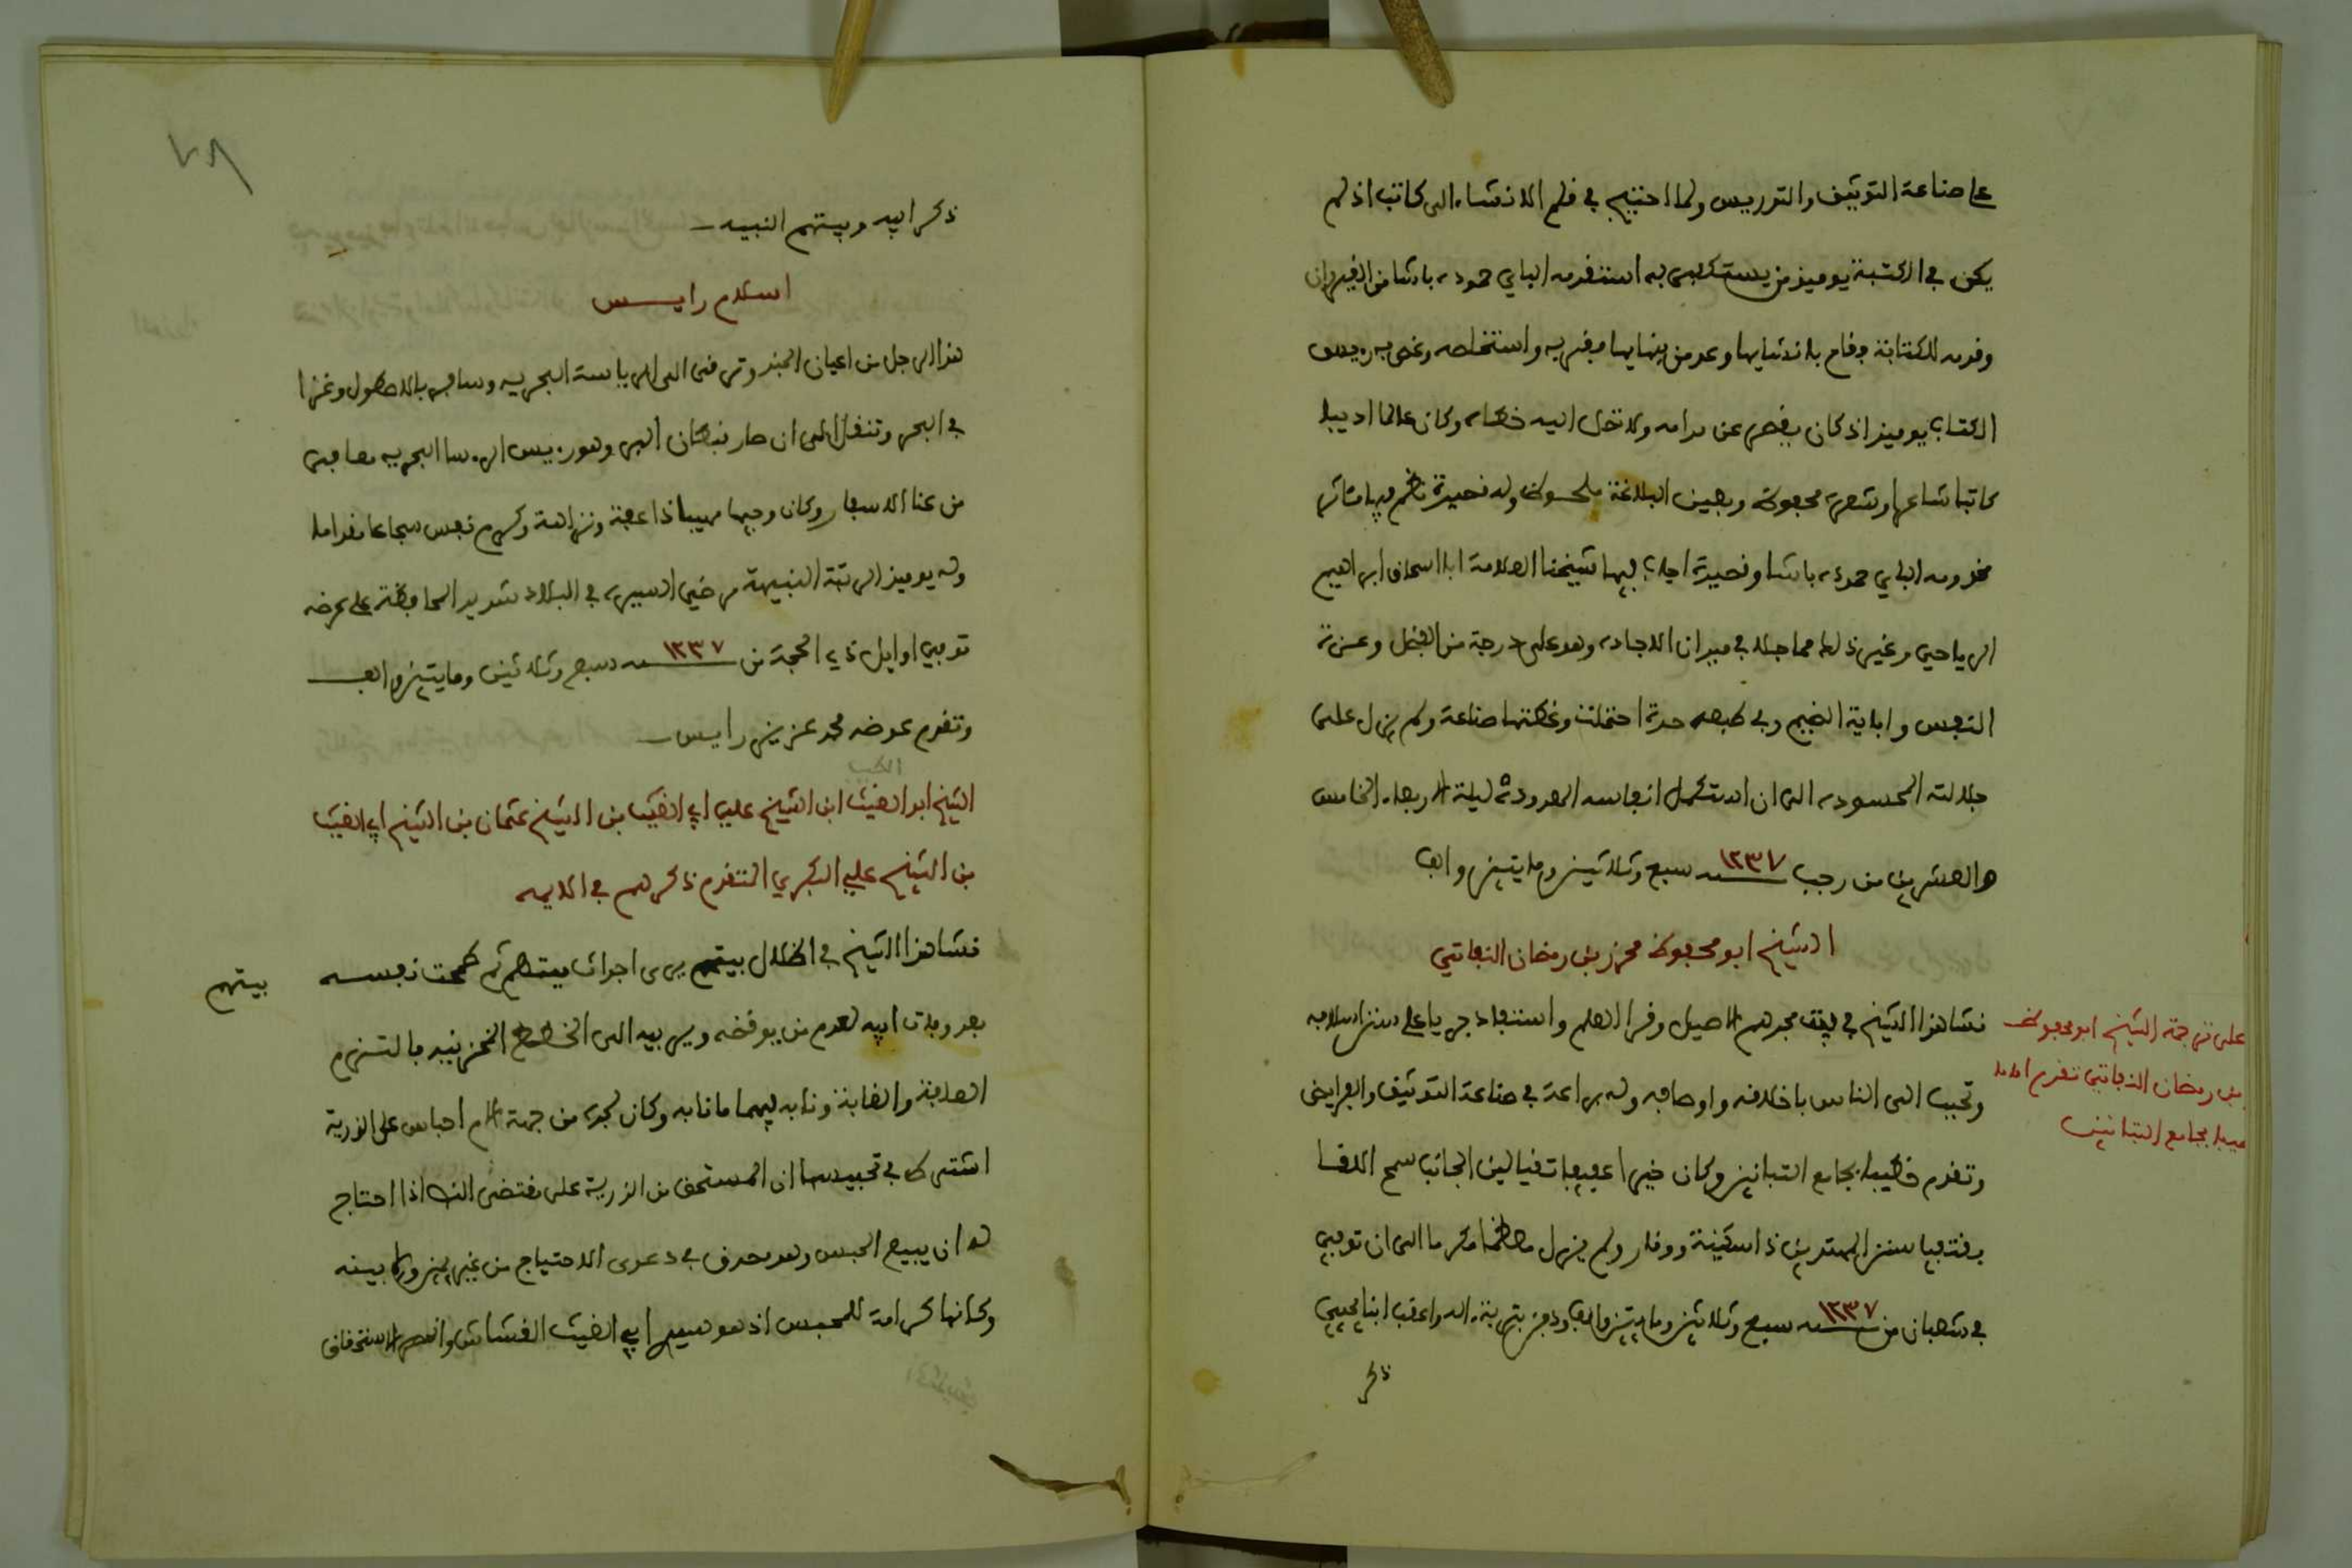 على صناعة التوثيق والتدريس ولما احتيج في قلم الانشاء الى كاتب اذ لم
يكن في الكتبة يوميذ من يستكفى به استقدمه الباي حمودة باشا من القيروان
وقدمه للكتابة فقام بانشايها وعد من بنهايها فقربه واستخلصه وغص به رييس
الكتاب يوميذ اذ كان يفصح عن مرامه ولا تخل اليه خطاه وكان عالما اديبا
كاتبا شاعرا وشعره محفوظ وبعين البلاغة ملحوظ وله قصيدة نظم فيها مئاثر
مخدومه الباي حمودة باشا وقصيدة اجاب فيها شيخنا العلامة ابا اسحاق ابراهيم
الرياحي وغير ذلك مما جلا في ميدان الاجادة وهو على درجة من الفضل وعزة
النفس واباية الضيم وفي طبعه حدة احتملت وغطتها صناعة ولم يزل على
جلالته المحسودة الى ان استكمل انفاسه المعدودة ليلة الاربعاء الخامس
والعشرين من رجب سنة ١٢٣٧ سبع وثلاثين ومايتين والف
الشيخ ابو محفوظ محرز بن رمضان النفاتي
نشا هذا الشيخ في بيت مجدهم الاصيل وقرا العلم واستفاد جريا على سنن اسلافه
وتحبب الى الناس باخلاقه واوصافه وله براعة في صناعة التوثيق والفرايض
وتقدم خطيبا بجامع التبانين وكان خيرا عفيفا تقيا لين الجانب سمح اللقا
مقتفيا سنن المهتدين ذا سكينة ووقار ولم يزل معظما مكرما الى ان توفي
في شعبان من سنة ١٢٣٧ سبع وثلاثين ومايتين والف ودفن بتربة اله واعقب ابنا يحيي
ذكر
على ترجمة الشيخ ابو محفوظ
بن رمضان النفاتي تقدم اماما
خطيبا بجامع التبانين
٧٨
ذكر ابيه وبيتهم النبيه
اسلام رايس
هذا الرجل من اعيان الجند وترقى الى الرياسة البحرية وسافر بالاصطول وغزا
في البحر وتنقل الى ان صار قبطان البر وهو رييس الروسا البحرية معافى
من عنا الاسفار وكان وجيها مهيبا ذا عفة ونزاهة وكرم نفس شجاعا مقداما
وله يوميذ الرتبة النبيهة مرضي السيرة في البلاد شديد المحافظة على عرضه
توفي اوايل ذي الحجة من سنة ١٢٣٧ سبع وثلاثين ومايتين والف
وتقدم عوضه محمد عزيز رايس
الشيخ ابو الغيث ابن الشيخ علي ابي الغيث بن الشيخ عثمان بن الشيخ ابي الغيث
بن الشيخ علي البكري المتقدم ذكرهم في الايمه
نشا هذا الشيخ في اظلال بيتهم يرى اجراث ميتهم ثم طمحت نفسه
بيتهم
بعد وفات ابيه لعدم من يوقضه ويربيه الى الخطط المخزنية فالتزم
العلاقة والغابة ونابه فيهما ما نابه وكان لجده من جهة الام احباس على الذرية
اشترط في تحبيسها ان المستحق من الذرية على مقتضى النص اذا احتاج
له ان يبيع الحبس وهو مصدق في دعوى الاحتياج من غير يمين ولا بينه
وكانها كرامة للمحبس اذ هو سيدي ابي الغيث القشاش وانحصر الاستحقاق